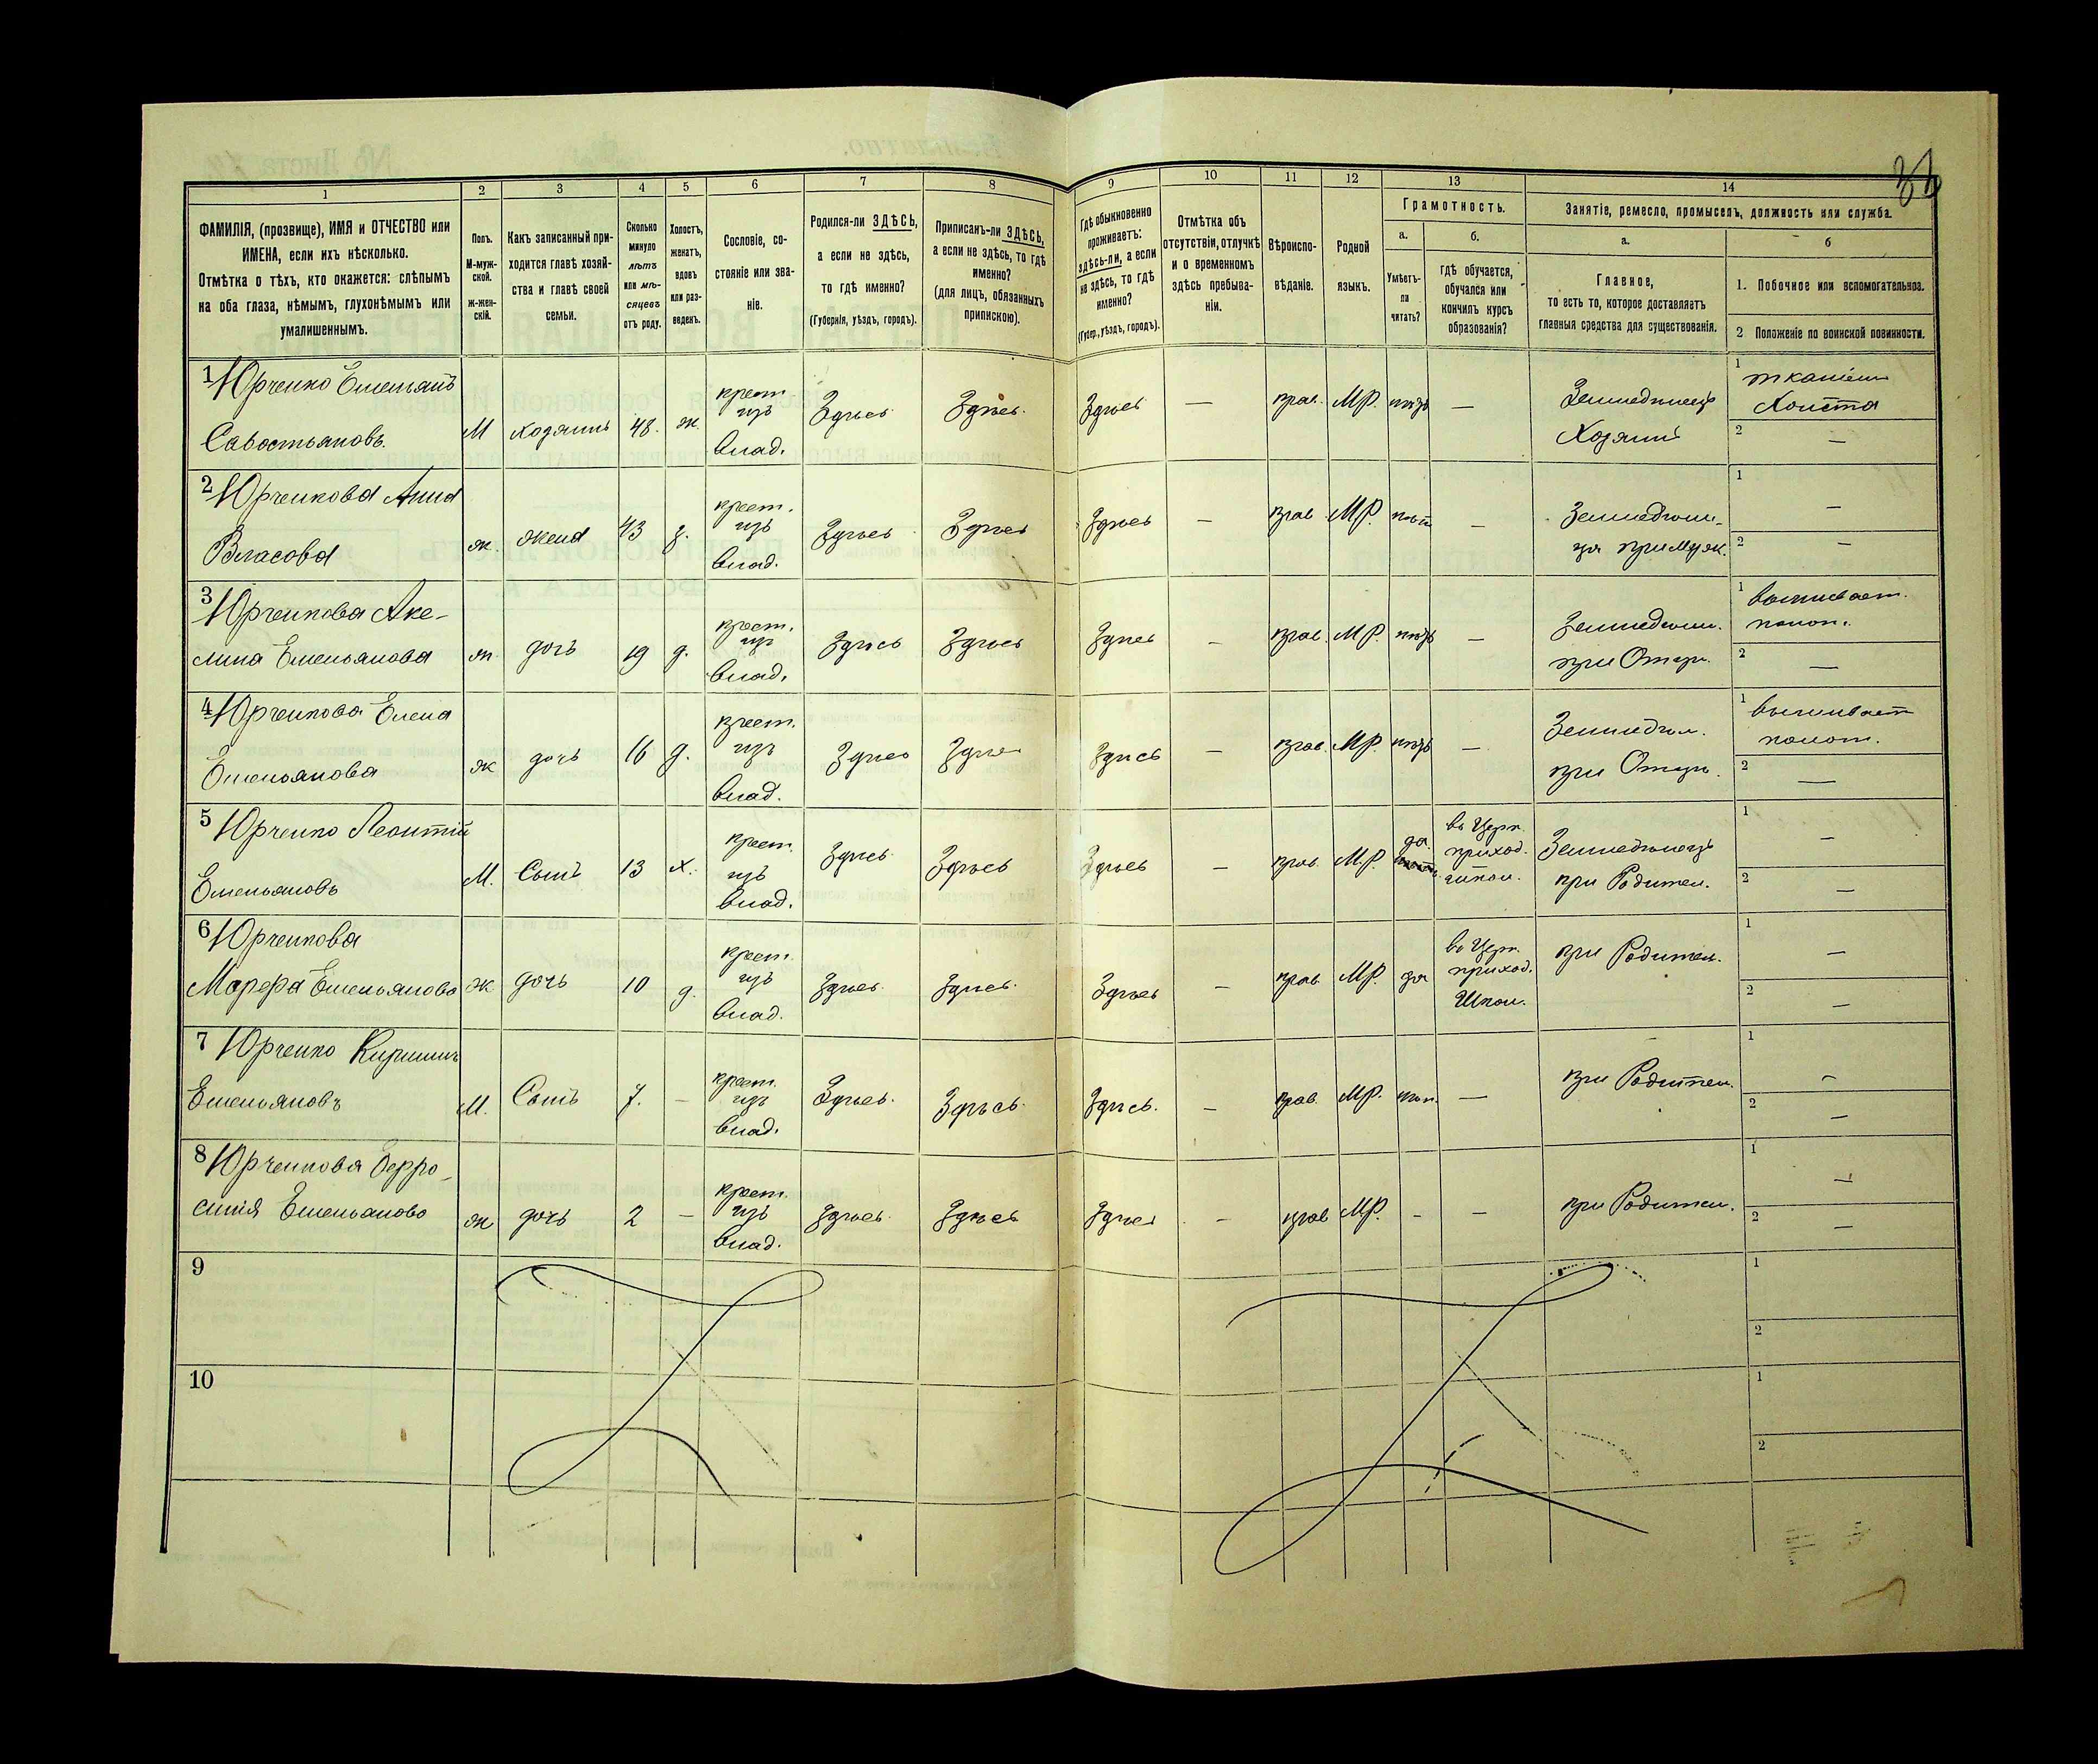 34
1 2 3 4 5 6 7 8 9 10 11 12 13 14
ФАМИЛІЯ, (прозвище), ИМЯ и ОТЧЕСТВО или
ИМЕНА, если ихъ нѣсколько.
Отмѣтка о тѣхъ, кто окажется: слѣпымъ
на оба глаза, нѣмымъ, глухонѣмымъ или
умалишеннымъ.
Полъ.
М-муж-
ской.
ж-жен-
скій.
Какъ записанный при-
ходится главѣ хозяй-
ства и главѣ своей
семьи.
Сколько
минуло
лѣтъ
или мѣ-
сяцевъ
отъ роду.
Холостъ,
женатъ,
вдовъ
или раз-
веденъ.
Сословіе, со-
стояніе или зва-
ніе.
Родился-ли ЗДѢСЬ,
а если не здѣсь,
то гдѣ именно?
(Губернія, уѣздъ, городъ).
Приписанъ-ли ЗДѢСЬ,
а если не здѣсь, то гдѣ
именно?
(для лицъ, обязанныхъ
припискою).
Гдѣ обыкновенно
проживаетъ:
здѣсь-ли, а если
не здѣсь, то гдѣ
именно?
(Губер., уѣздъ, городъ).
Отмѣтка объ
отсутствіи, отлучкѣ
и о временномъ
здѣсь пребыва-
ніи.
Вѣроиспо-
вѣданіе.
Родной
языкъ.
Грамотность.
а.
Умѣетъ-
ли
читать?
б.
гдѣ обучается,
обучался или
кончилъ курсъ
образованія?
Занятіе, ремесло, промыселъ, должность или служба.
а.
Главное,
то есть то, которое доставляетъ
главныя средства для существованія.
б
1. Побочное или вспомогательное.
2 Положеніе по воинской повинности.
1 Юрченко Емельянъ
Савостьяновъ
М хозяинъ 48. ж.
крест.
изъ
влад.
Здѣсь Здѣсь Здѣсь — прав. МР. нѣтъ —
Земледѣлецъ
Хозяинъ
1 тканіемъ
Холста
2 —
2 Юрченкова Анна
Власова
ж. жена 43 з.
крест.
изъ
влад.
Здѣсь Здѣсь Здѣсь — прав МР. нѣт —
Земледѣли-
ца при Муж.
1 —
2 —
3 Юрченкова Аке-
лина Емельянова
ж. дочь 19 д.
крест.
изъ
влад.
Здѣсь Здѣсь Здѣсь — прав. МР. нѣтъ —
Земледѣли.
при Отцѣ.
1 вышивает.
полот.
2 —
4 Юрченкова Елена
Емельянова
ж дочь 16 д.
крест.
изъ
влад.
Здѣсь Здѣсь Здѣсь — прав. МР. нѣтъ —
Земледѣл.
при Отцѣ.
1 вышивает
полот.
2 —
5 Юрченко Леонтій
Емельяновъ
М. Сынъ 13 х.
крест.
изъ
влад.
Здѣсь Здѣсь Здѣсь — прав. М.Р. да.
въ Церк.
приход.
школ.
Земледѣлецъ
при Родител.
1 —
2 —
6 Юрченкова
Марфа Емельянова
ж дочь 10 д.
крест.
изъ
влад.
Здѣсь Здѣсь Здѣсь — прав. МР. да
въ Церк.
приход.
Школ.
при Родител.
1 —
2 —
7 Юрченко Кириллъ
Емельяновъ
М. Сынъ 7. —
крест.
изъ
влад.
Здѣсь Здѣсь Здѣсь. — прав. МР. нѣт. —
при Родител.
1 —
2 —
8 Юрченкова Ефро-
синія Емельянова
ж дочь 2 —
крест.
изъ
влад.
Здѣсь Здѣсь Здѣсь — прав МР. — —
при Родител.
1 —
2 —
9
1
2
10
1
2